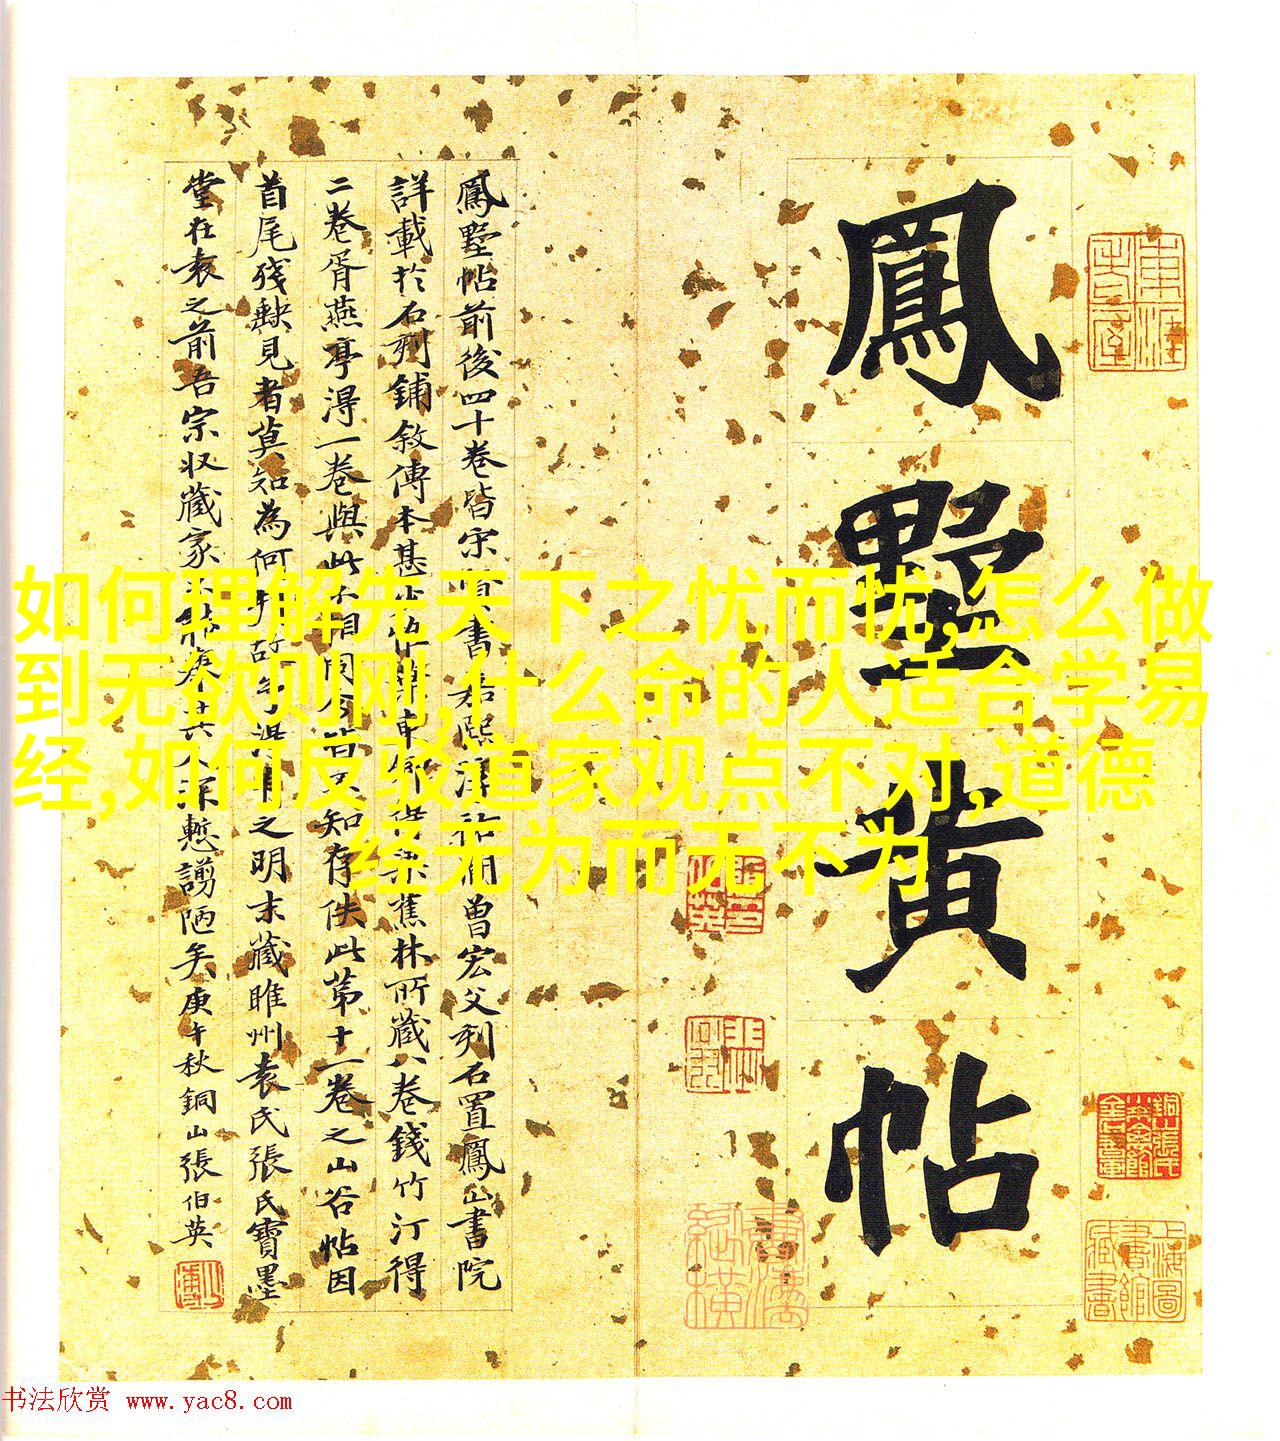 鳳墅黃帖
鳳墅帖前後四十卷皆宋賢書嘉熙淳祐間曾宏父刻石置鳳山書院
詳載於石刻鋪敘傳本甚少
二卷胥燕亭淂一卷與此不相同今皆不知存佚此第十一卷之山谷帖因
首尾殘缺見者莫知為何
之明末藏睢州袁氏張氏寶墨
堂在袁之前吾宗収藏家
深慙謭陋矣庚午秋銅山張伯英
如何理解先天下之忧而忧,怎么做
到无欲则刚,什么命的人适合学易
经,如何反驳道家观点不对,道德
经无为而无不为
书法欣赏 www.yac8.com